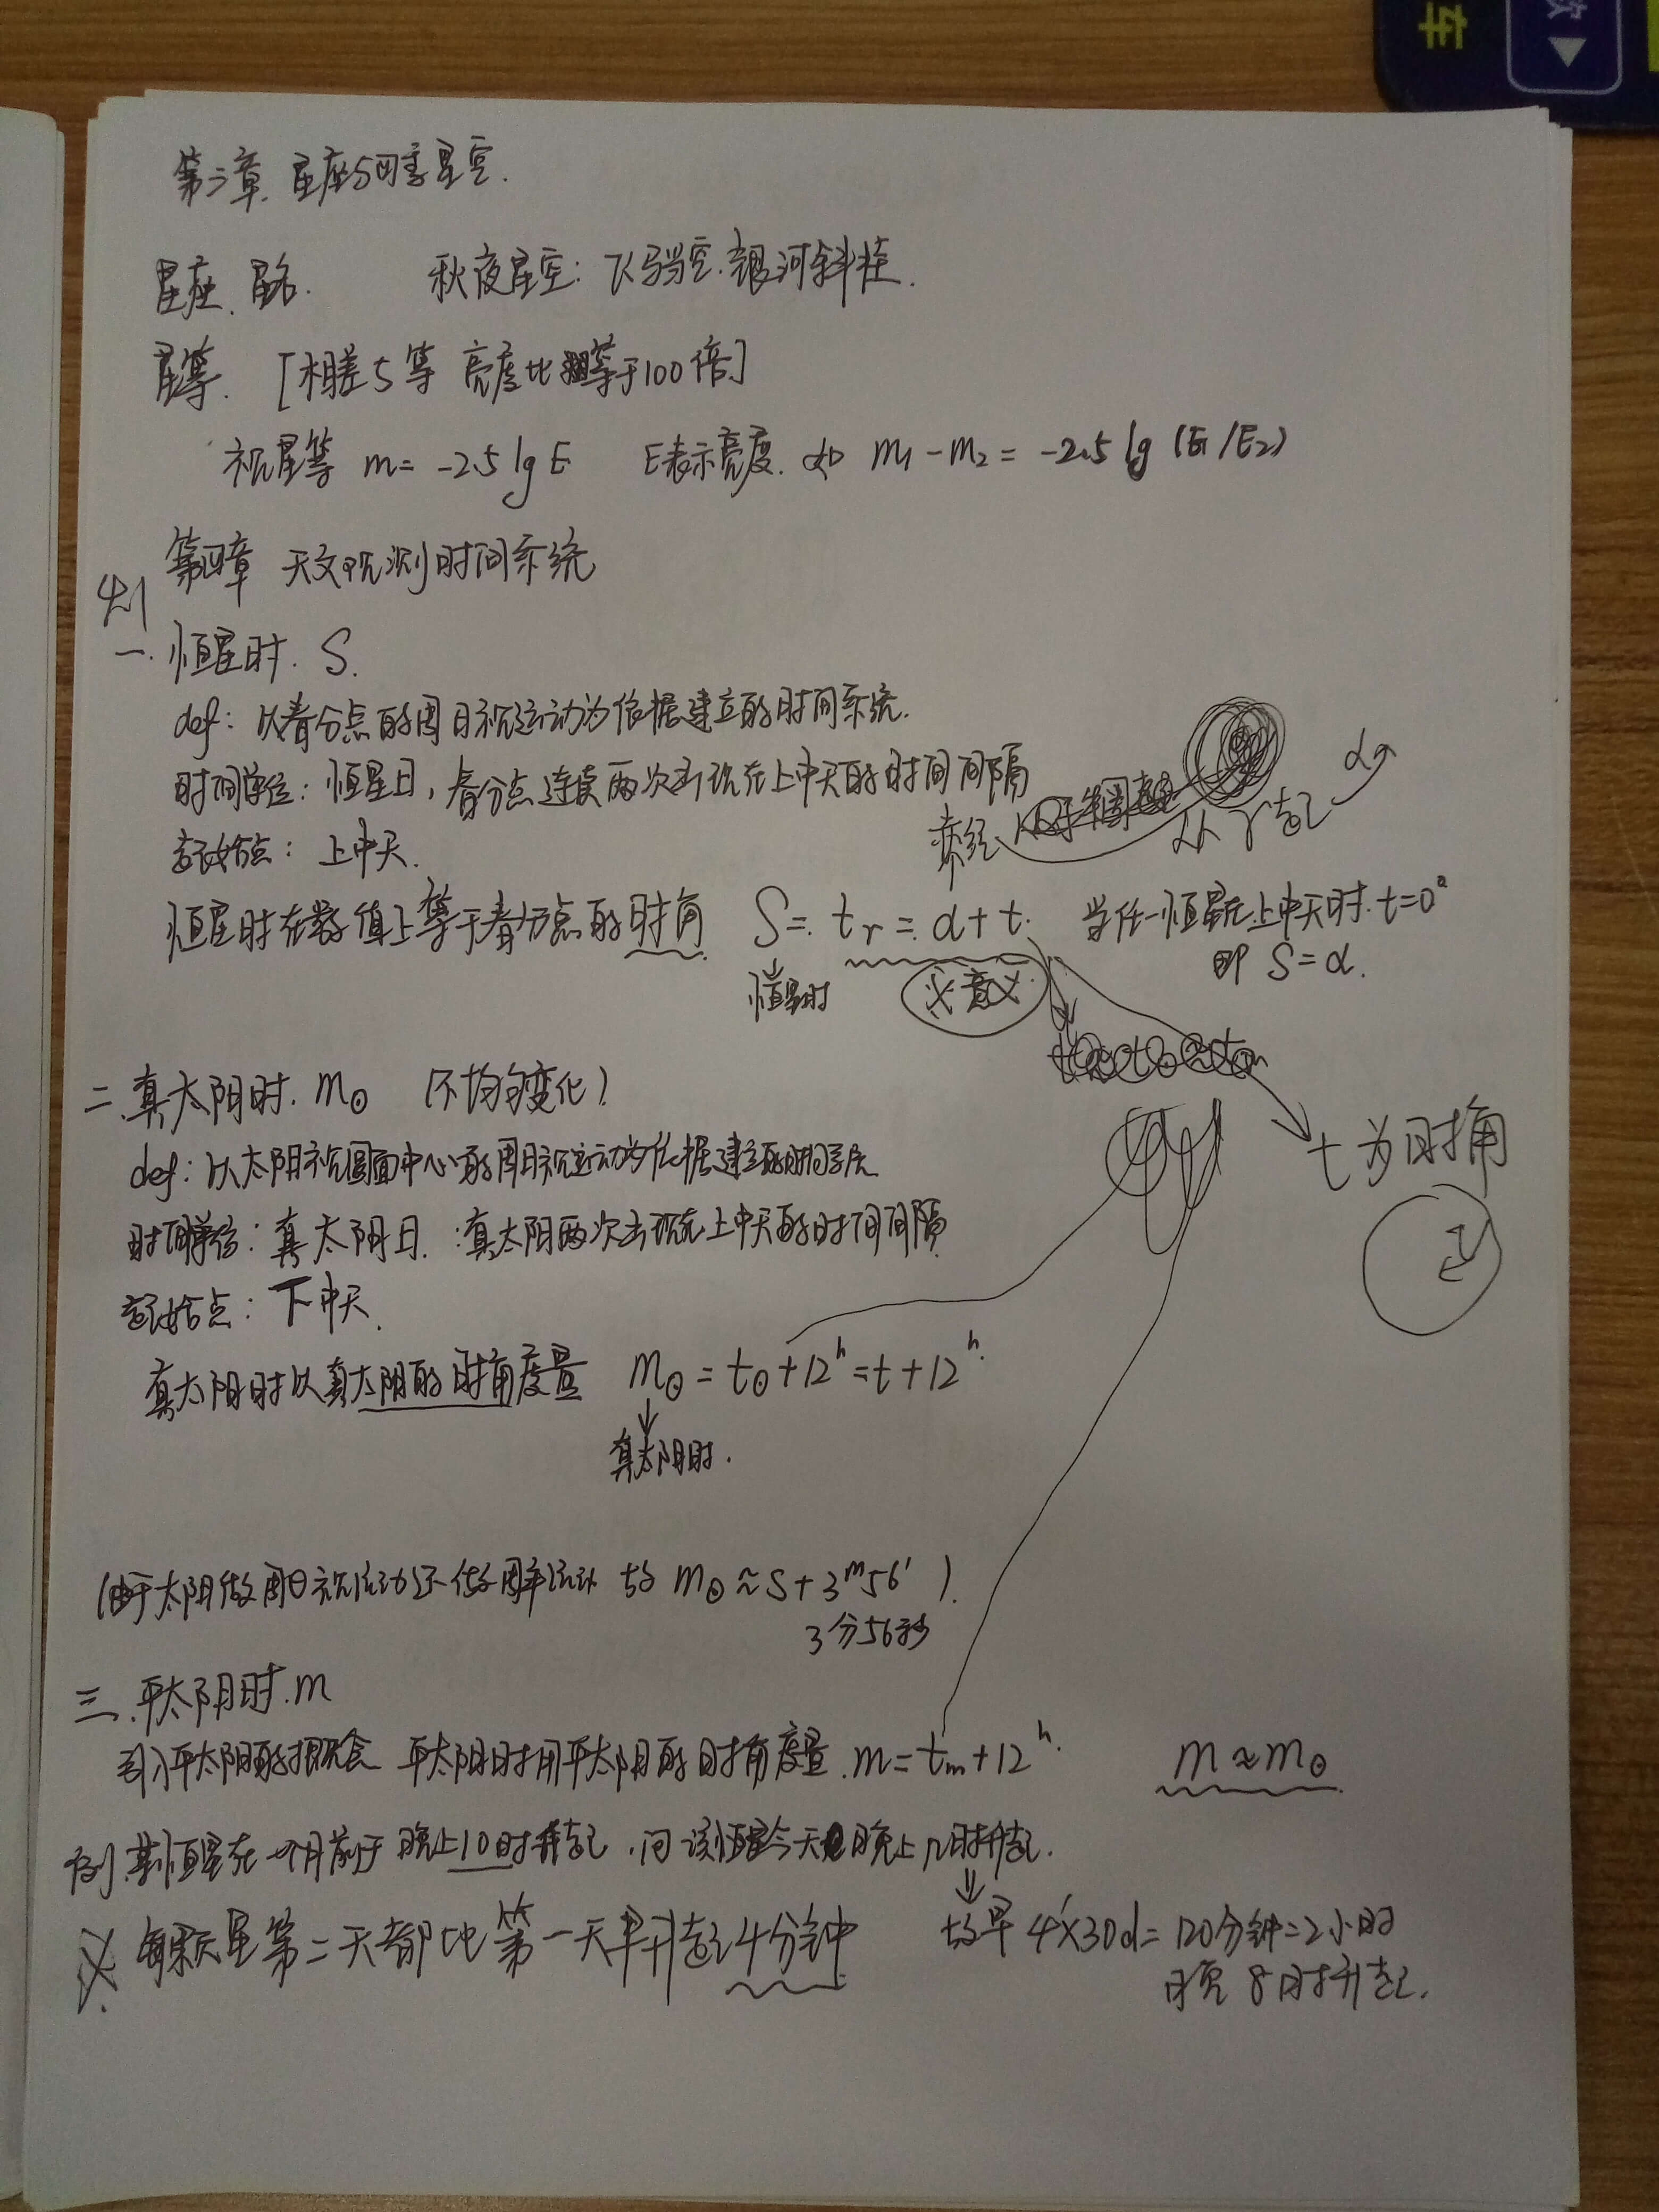 第三章. 星座与四季星空.
星座. 星名. 秋夜星空: 飞马当空. 银河斜挂.
星等. [相差5等 亮度比等于100倍]
视星等 m = -2.5 lg E E表示亮度. 如 m₁ - m₂ = -2.5 lg (E₁/E₂)
第四章 天文观测时间系统
4.1
一. 恒星时. S.
def: 以春分点的周日视运动为依据建立的时间系统.
时间单位: 恒星日, 春分点连续两次出现在上中天的时间间隔
赤经 从γ起 α
起始点: 上中天.
恒星时在数值上等于春分点的时角 S = tᵣ = α + t. 当任一恒星在上中天时. t=0
即 S = α.
恒星时 ※意义
二. 真太阳时. m⊙ (不均匀变化)
t为时角
def: 以太阳视圆面中心的周日视运动为依据建立的时间系统
时间单位: 真太阳日. : 真太阳两次出现在上中天的时间间隔
起始点: 下中天.
真太阳时以真太阳的时角度量 m⊙ = t⊙ + 12ʰ = t + 12ʰ.
真太阳时.
(由于太阳做周日视运动还做周年运动 故 m⊙ ≈ S + 3ᵐ56' ).
3分56秒
三. 平太阳时. m
引入平太阳的概念 平太阳时用平太阳的时角度量. m = tₘ + 12ʰ. m ≈ m⊙
例. 某恒星在一个月前于晚上10时升起. 问该恒星今天晚上几时升起.
※. 每颗星第二天都比第一天早升起4分钟 故早 4'×30d = 120分钟 = 2小时
晚8时升起.
车